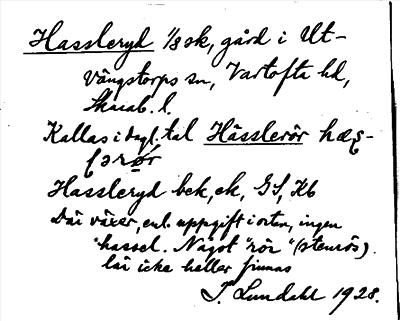 Hassleryd 1/8 sk, gård i Ut-
vängstorps sn, Vartofta hd,
Skarab. l.
Kallas i dagl. tal Hässlerör hæʂ-
lərør
Hassleryd bek, ek, GS, Kb
Där växer, enl. uppgift i orten, ingen
hassel. Något "rör" (stenrös)
lär icke heller finnas
J. Lundahl 1928.